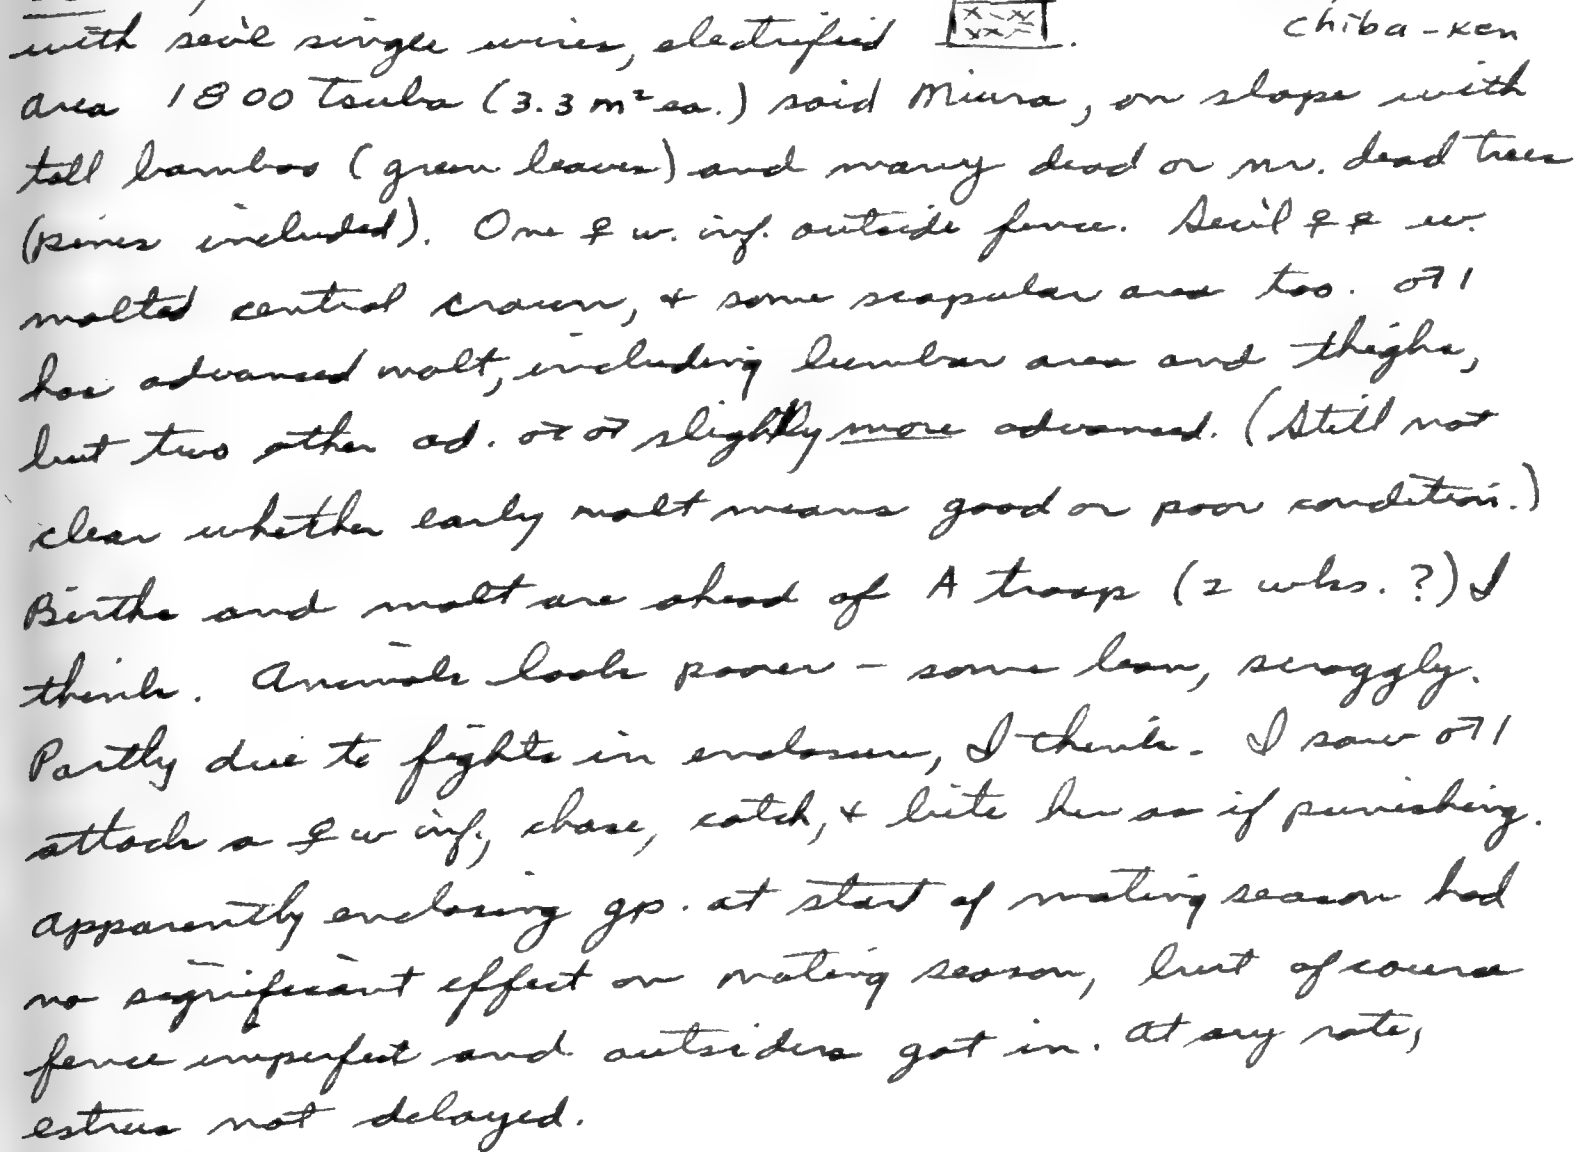 with sev'l single wires, electrified . chiba-ken
area 1800 Tsuba (3.3 m² ea.) said Miura, on slope with
tall bamboo (green leaves) and many dead or nr. dead trees
(pines included). One ♀ w. inf. outside fence. Sev'l ♀♀ w.
molted central crown, & some scapular area too. ♂1
has advanced molt, including lumbar area and thighs,
but two other ad. ♂♂ slightly more advanced. (Still not
clear whether early molt means good or poor condition.)
Births and molt are ahead of A troop (2 wks. ?) I
think. Animals look poorer – some lean, scraggly.
Partly due to fights in enclosure, I think. I saw ♂1
attack a ♀ w inf., chase, catch, & bite her as if punishing.
Apparently enclosing gp. at start of mating season had
no significant effect on mating season, but of course
fence imperfect and outsiders got in. At any rate,
estrus not delayed.